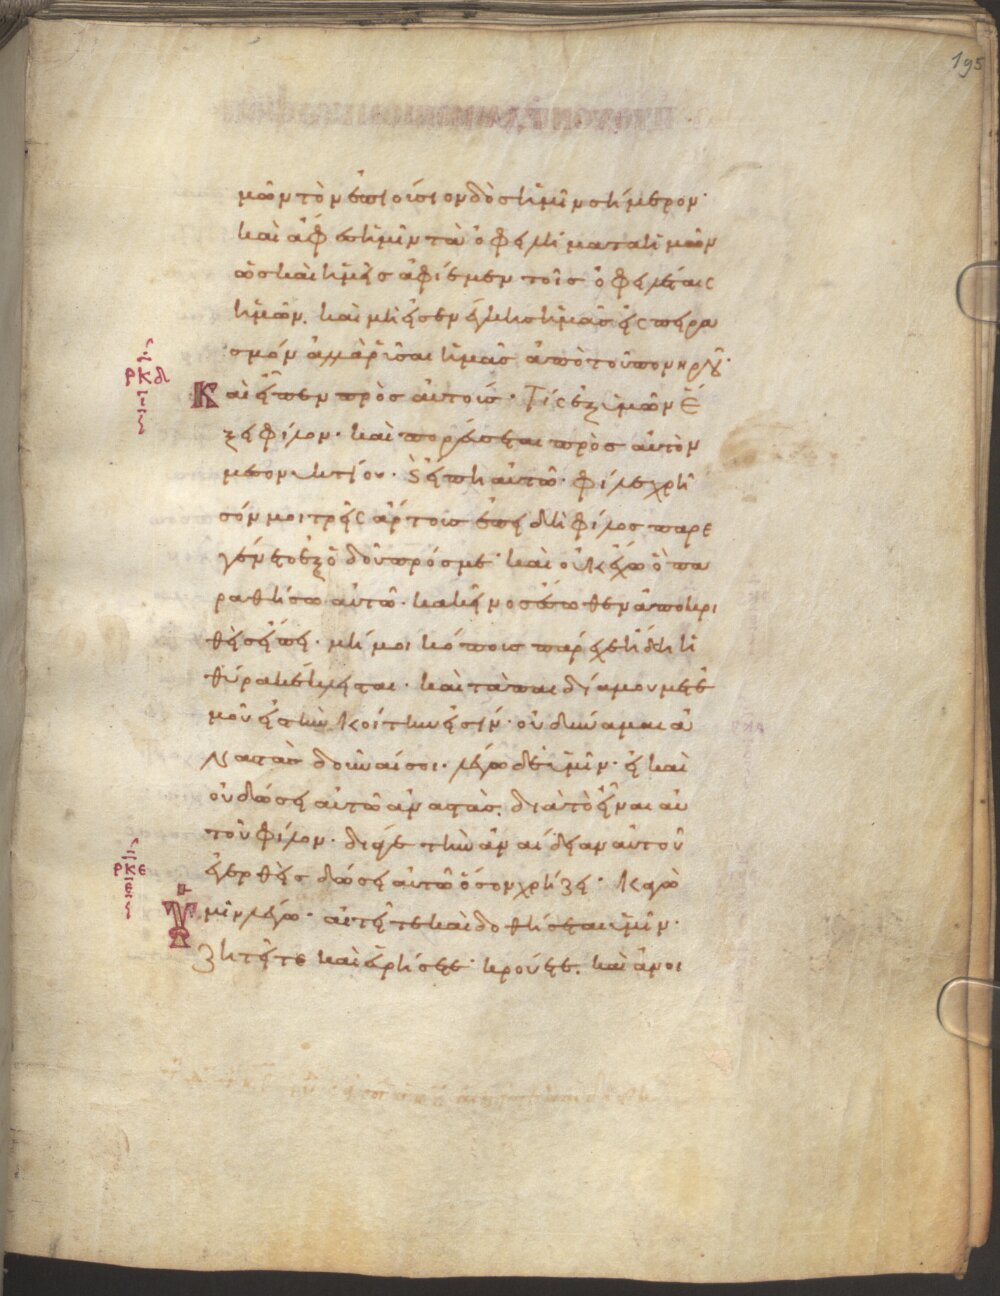 195
μῶν τὸν ἐπιούσιον δὸς ἡμῖν σήμερον·
καὶ ἄφες ἡμῖν τὰ ὀφειλήματα ἡμῶν
ὡς καὶ ἡμεῖς ἀφίεμεν τοῖς ὀφειλέταις
ἡμῶν. καὶ μὴ εἰσενέγκῃς ἡμᾶς εἰς πειρα
σμόν ἀλλὰ ῥῦσαι ἡμᾶς ἀπὸ τοῦ πονηροῦ·
ρκδ
ι
Καὶ εἶπεν πρὸς αὐτούς· Τίς ἐξ ὑμῶν ἕ
ξει φίλον· καὶ πορεύσεται πρὸς αὐτὸν
μεσονυκτίου· κ εἴπῃ αὐτῶ· φίλε χρῆ
σόν μοι τρεῖς ἄρτους ἐπειδὴ φίλος παρε
γένετο ἐξ ὁδοῦ πρός με· καὶ οὐκ ἔχω ὃ πα
ραθήσω αὐτῶ· κακεῖνος ἔσωθεν ἀποκρι
θεὶς εἴπῃ· μή μοι κόπους πάρεχε ἤδη ἡ
θύρα κέκλεισται· καὶ τὰ παιδία μου μετ ἐ
μοῦ εἰς τὴν κοίτην εἰσίν· οὐ δύναμαι ἀ
ναστὰς δοῦναί σοι· λέγω δὲ ὑμῖν· εἰ καὶ
οὐ δώσει αὐτῶ ἀναστὰς. διὰ τὸ εἶναι αὐ
τοῦ φίλον· διά γε τὴν ἀναίδειαν αὐτοῦ
ἐγερθεὶς δώσει αὐτῶ ὅσον χρήζει· Καγὼ
ρκε
ε
Ὑμῖν λέγω· αἰτεῖτε καὶ δοθήσεται ὑμῖν·
Ζητεῖτε καὶ εὑρήσετε· κρούετε. καὶ ἀνοι